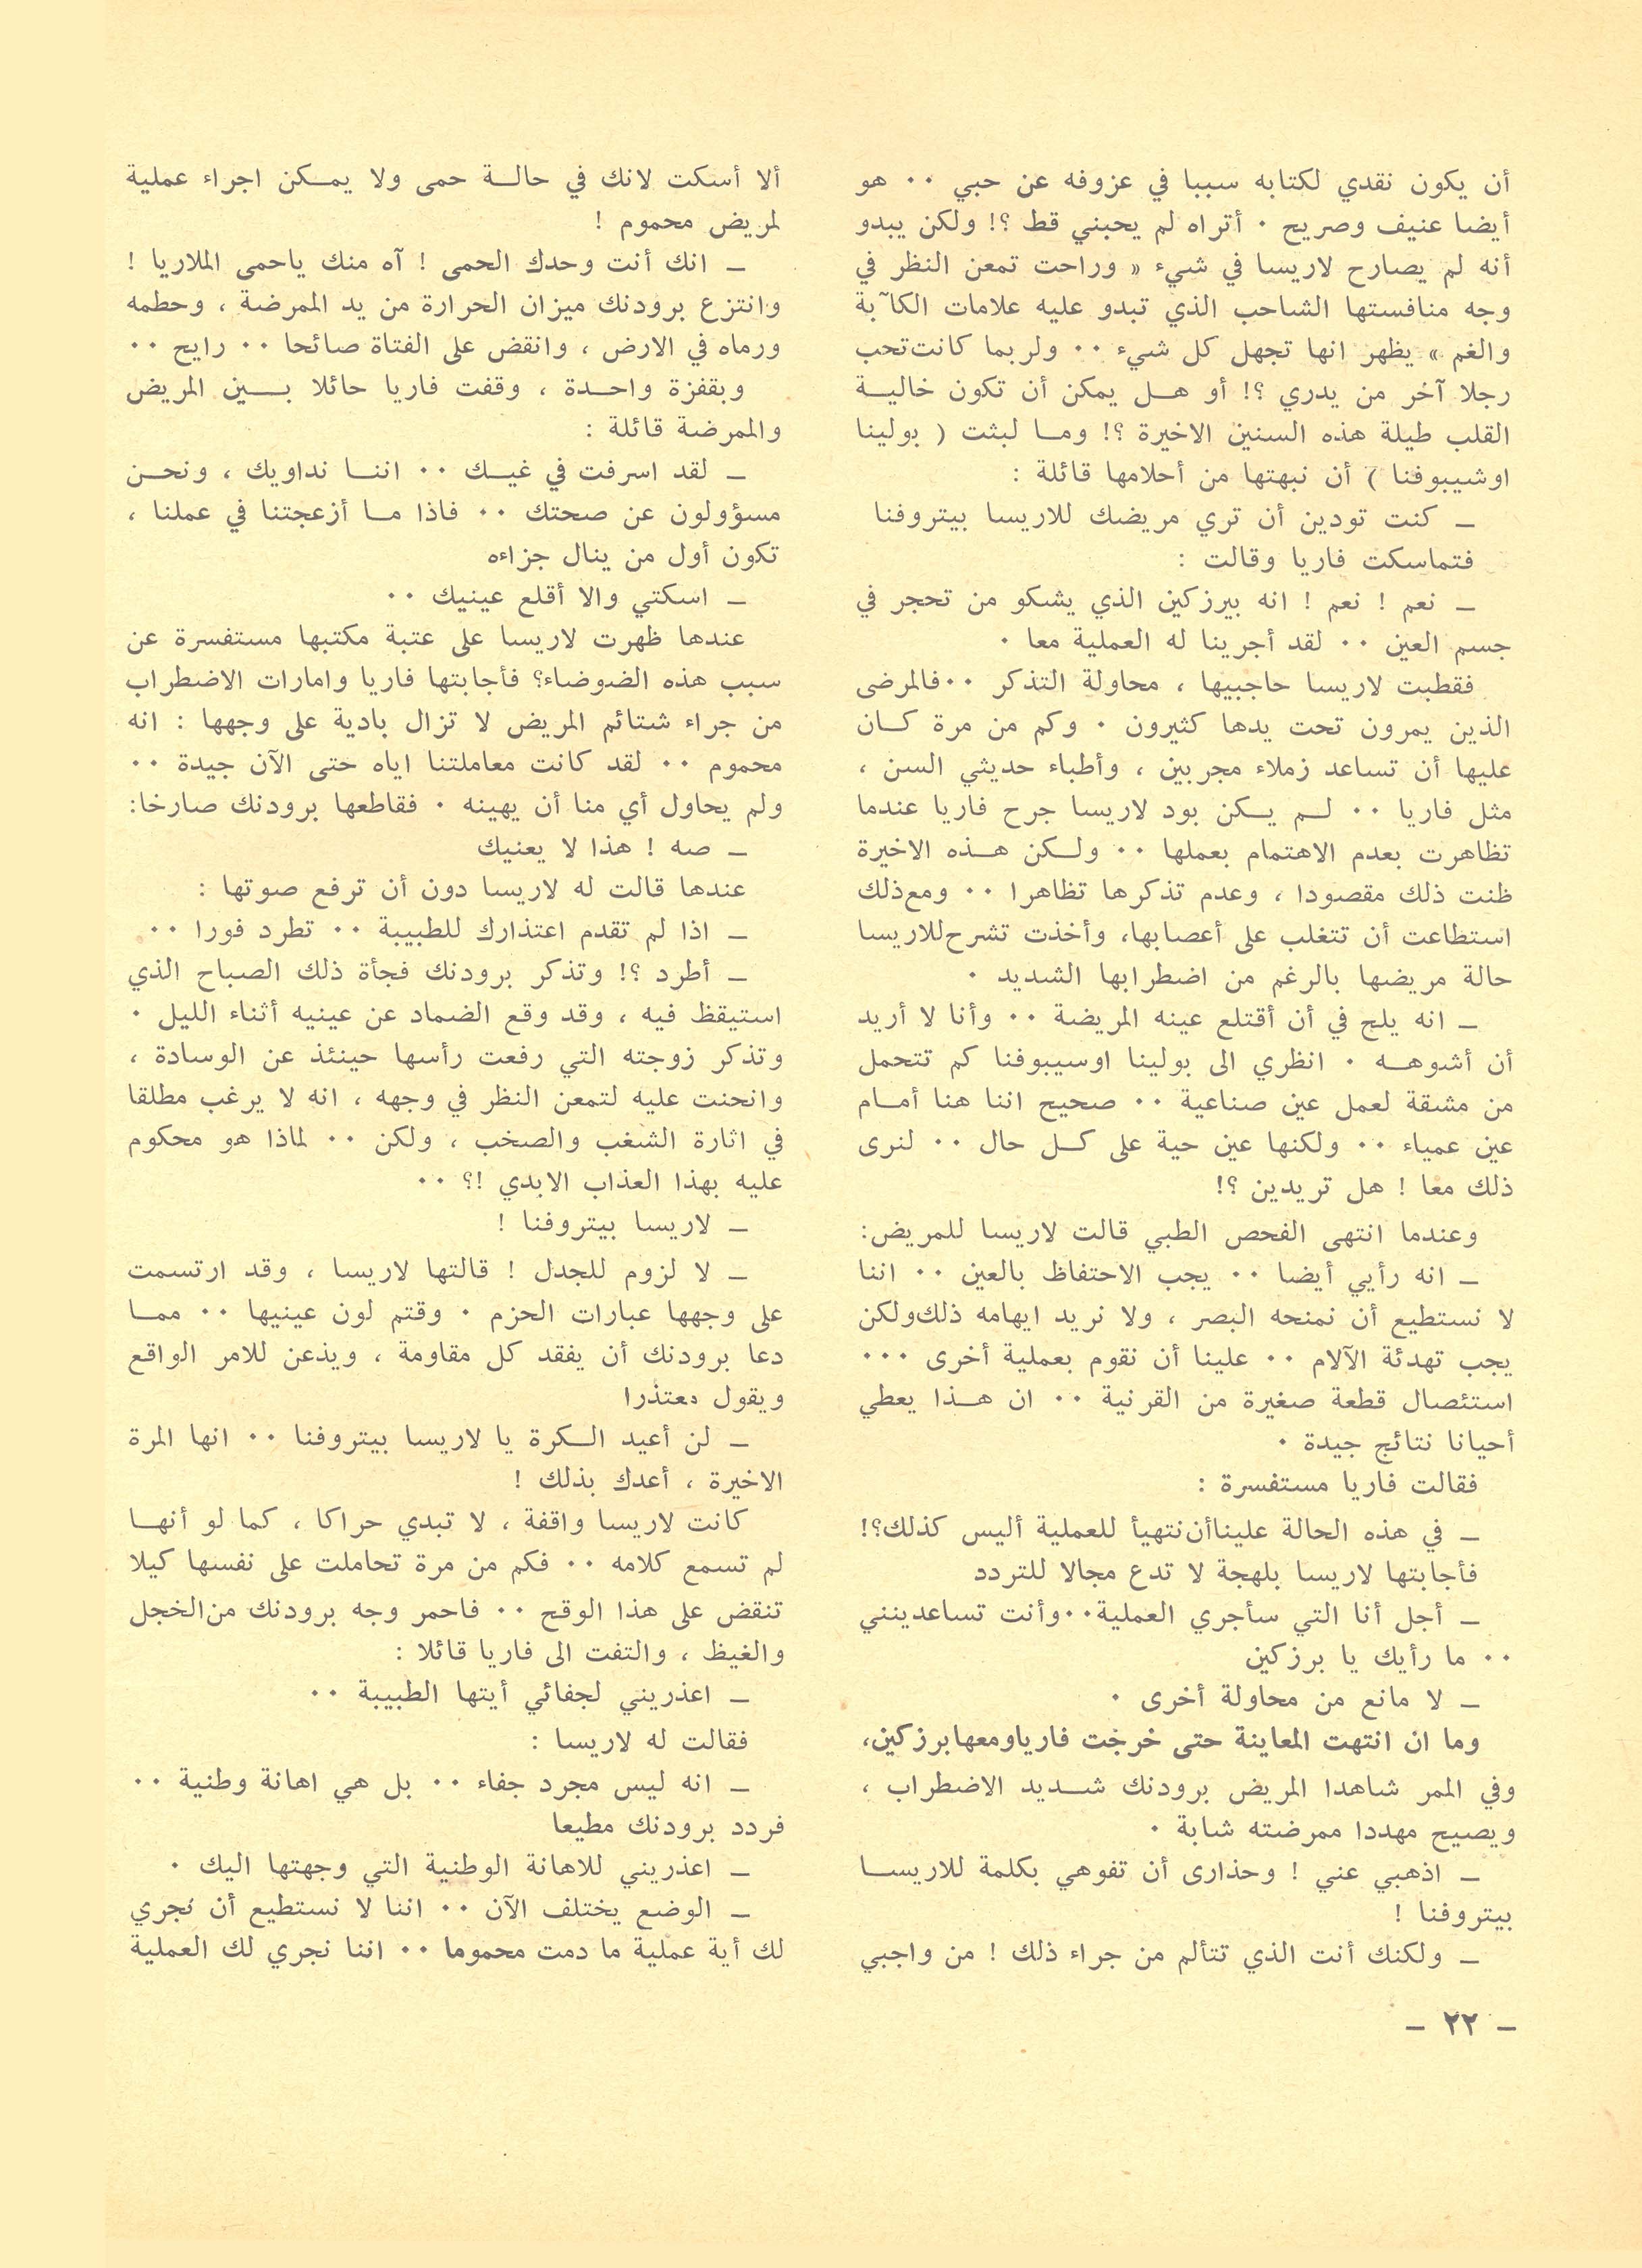 أن يكون نقدي لكتابه سببا في عزوفه عن حبي ٠٠ هو
أيضا عنيف وصريح ٠ أتراه لم يحبني قط ؟! ولكن يبدو
أنه لم يصارح لاريسا في شيء « وراحت تمعن النظر في
وجه منافستها الشاحب الذي تبدو عليه علامات الكآبة
والغم » يظهر انها تجهل كل شيء ٠٠ ولربما كانت تحب
رجلا آخر من يدري ؟! أو هل يمكن أن تكون خالية
القلب طيلة هذه السنين الاخيرة ؟! وما لبثت ( بولينا
اوشيبوفنا ) أن نبهتها من أحلامها قائلة :
ـ كنت تودين أن تري مريضك للاريسا بيتروفنا
فتماسكت فاريا وقالت :
ـ نعم ! نعم ! انه بيرزكين الذي يشكو من تحجر في
جسم العين ٠٠ لقد أجرينا له العملية معا ٠
فقطبت لاريسا حاجبيها ، محاولة التذكر ٠٠فالمرضى
الذين يمرون تحت يدها كثيرون ٠ وكم من مرة كان
عليها أن تساعد زملاء مجربين ، وأطباء حديثي السن ،
مثل فاريا ٠٠ لم يكن بود لاريسا جرح فاريا عندما
تظاهرت بعدم الاهتمام بعملها ٠٠ ولكن هذه الاخيرة
ظنت ذلك مقصودا ، وعدم تذكرها تظاهرا ٠٠ ومع ذلك
استطاعت أن تتغلب على أعصابها، وأخذت تشرح للاريسا
حالة مريضها بالرغم من اضطرابها الشديد ٠
ـ انه يلح في أن أقتلع عينه المريضة ٠٠ وأنا لا أريد
أن أشوهه ٠ انظري الى بولينا اوسيبوفنا كم تتحمل
من مشقة لعمل عين صناعية ٠٠ صحيح اننا هنا أمام
عين عمياء ٠٠ ولكنها عين حية على كل حال ٠٠ لنرى
ذلك معا ! هل تريدين ؟!
وعندما انتهى الفحص الطبي قالت لاريسا للمريض:
ـ انه رأيي أيضا ٠٠ يجب الاحتفاظ بالعين ٠٠ اننا
لا نستطيع أن نمنحه البصر ، ولا نريد ايهامه ذلك ولكن
يجب تهدئة الآلام ٠٠ علينا أن نقوم بعملية أخرى ٠٠٠
استئصال قطعة صغيرة من القرنية ٠٠ ان هذا يعطي
أحيانا نتائج جيدة ٠
فقالت فاريا مستفسرة :
ـ في هذه الحالة علينا أن نتهيأ للعملية أليس كذلك؟!
فأجابتها لاريسا بلهجة لا تدع مجالا للتردد
ـ أجل أنا التي سأجري العملية٠٠وأنت تساعدينني
٠٠ ما رأيك يا برزكين
ـ لا مانع من محاولة أخرى ٠
وما ان انتهت المعاينة حتى خرجت فاريا ومعها برزكين،
وفي الممر شاهدا المريض برودنك شديد الاضطراب ،
ويصيح مهددا ممرضته شابة ٠
ـ اذهبي عني ! وحذارى أن تفوهي بكلمة للاريسا
بيتروفنا !
ـ ولكنك أنت الذي تتألم من جراء ذلك ! من واجبي
ألا أسكت لانك في حالة حمى ولا يمكن اجراء عملية
لمريض محموم !
ـ انك أنت وحدك الحمى ! آه منك ياحمى الملاريا !
وانتزع برودنك ميزان الحرارة من يد الممرضة ، وحطمه
ورماه في الارض ، وانقض على الفتاة صائحا ٠٠ رايح ٠٠
وبقفزة واحدة ، وقفت فاريا حائلا بين المريض
والممرضة قائلة :
ـ لقد اسرفت في غيك ٠٠ اننا نداويك ، ونحن
مسؤولون عن صحتك ٠٠ فاذا ما أزعجتنا في عملنا ،
تكون أول من ينال جزاءه
ـ اسكتي والا أقلع عينيك ٠٠
عندها ظهرت لاريسا على عتبة مكتبها مستفسرة عن
سبب هذه الضوضاء؟ فأجابتها فاريا وامارات الاضطراب
من جراء شتائم المريض لا تزال بادية على وجهها : انه
محموم ٠٠ لقد كانت معاملتنا اياه حتى الآن جيدة ٠٠
ولم يحاول أي منا أن يهينه ٠ فقاطعها برودنك صارخا:
ـ صه ! هذا لا يعنيك
عندها قالت له لاريسا دون أن ترفع صوتها :
ـ اذا لم تقدم اعتذارك للطبيبة ٠٠ تطرد فورا ٠٠
ـ أطرد ؟! وتذكر برودنك فجأة ذلك الصباح الذي
استيقظ فيه ، وقد وقع الضماد عن عينيه أثناء الليل ٠
وتذكر زوجته التي رفعت رأسها حينئذ عن الوسادة ،
وانحنت عليه لتمعن النظر في وجهه ، انه لا يرغب مطلقا
في اثارة الشغب والصخب ، ولكن ٠٠ لماذا هو محكوم
عليه بهذا العذاب الابدي !؟ ٠٠
ـ لاريسا بيتروفنا !
ـ لا لزوم للجدل ! قالتها لاريسا ، وقد ارتسمت
على وجهها عبارات الحزم ٠ وقتم لون عينيها ٠٠ مما
دعا برودنك أن يفقد كل مقاومة ، ويذعن للامر الواقع
ويقول معتذرا
ـ لن أعيد الكرة يا لاريسا بيتروفنا ٠٠ انها المرة
الاخيرة ، أعدك بذلك !
كانت لاريسا واقفة ، لا تبدي حراكا ، كما لو أنها
لم تسمع كلامه ٠٠ فكم من مرة تحاملت على نفسها كيلا
تنقض على هذا الوقح ٠٠ فاحمر وجه برودنك من الخجل
والغيظ ، والتفت الى فاريا قائلا :
ـ اعذريني لجفائي أيتها الطبيبة ٠٠
فقالت له لاريسا :
ـ انه ليس مجرد جفاء ٠٠ بل هي اهانة وطنية ٠٠
فردد برودنك مطيعا
ـ اعذريني للاهانة الوطنية التي وجهتها اليك ٠
ـ الوضع يختلف الآن ٠٠ اننا لا نستطيع أن نجري
لك أية عملية ما دمت محموما ٠٠ اننا نجري لك العملية
ـ ٢٢ ـ